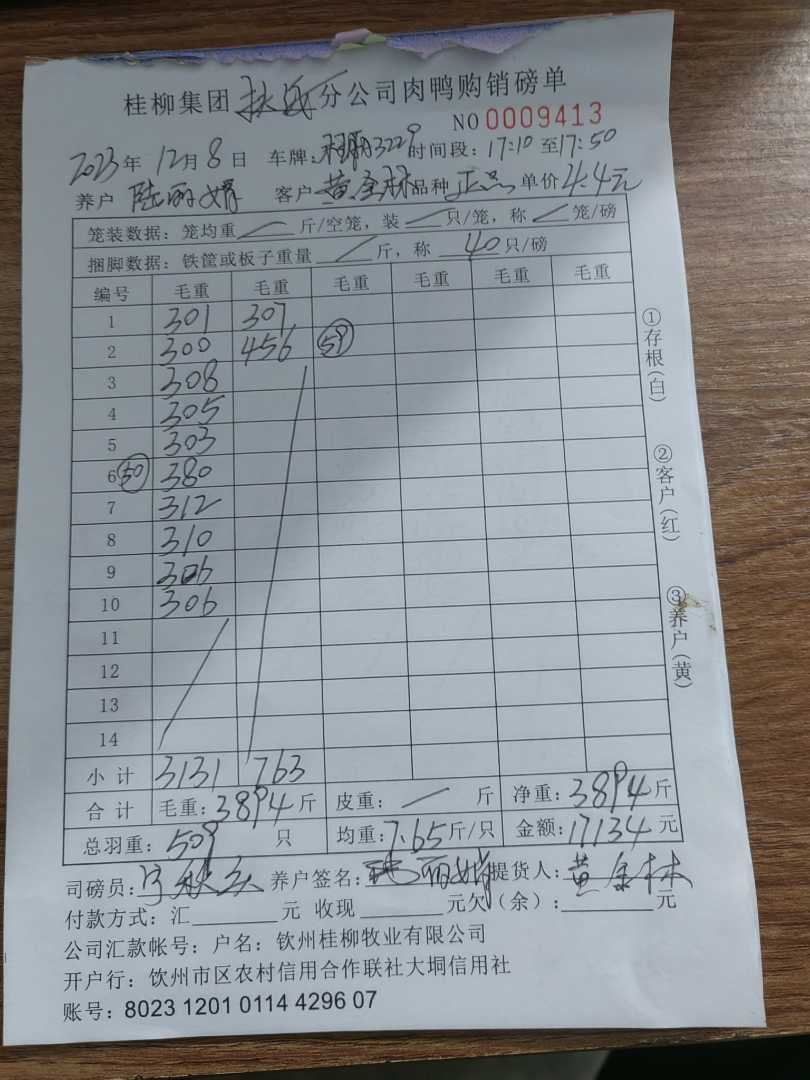 桂柳集团 分公司肉鸭购销磅单
NO 0009413
2023年 12月 8日 车牌: 3229 时间段: 17:10 至 17:50
养户 陆丽娟 客户 黄金林 品种 正品 单价 4.4元
笼装数据: 笼均重 / 斤/空笼, 装 / 只/笼, 称 / 笼/磅
捆脚数据: 铁筐或板子重量 / 斤, 称 40 只/磅
编号 毛重 毛重 毛重 毛重 毛重 毛重
1 301 307
2 300 456 59
3 308
4 305
5 303
6 50 380
7 312
8 310
9 306
10 306
11
12
13
14
小计 3131 763
合计 毛重: 3894 斤 皮重: / 斤 净重: 3894 斤
总羽重: 509 只 均重: 7.65 斤/只 金额: 17134 元
司磅员: 养户签名: 陆丽娟 提货人: 黄金林
付款方式: 汇 元 收现 元欠(余): 元
公司汇款帐号: 户名: 钦州桂柳牧业有限公司
开户行: 钦州市区农村信用合作联社大垌信用社
账号: 8023 1201 0114 4296 07
①存根(白)
②客户(红)
③养户(黄)